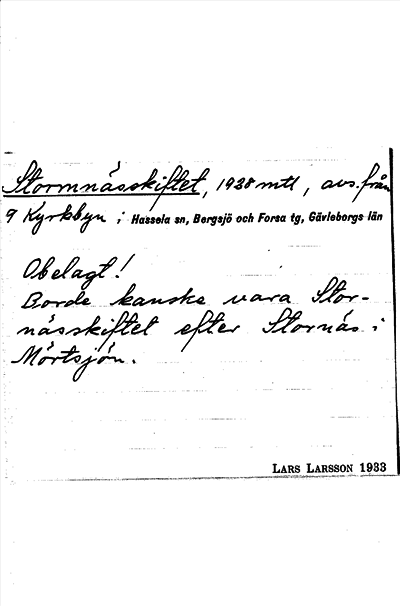 Stormnässkiftet, 1938 mtl, avs. från
9 Kyrkbyn i Hassela sn, Bergsjö och Forsa tg, Gävleborgs län
Obelagt!
Borde kanske vara Stor-
nässkiftet efter Stornäs i
Mörtsjön.
LARS LARSSON 1933